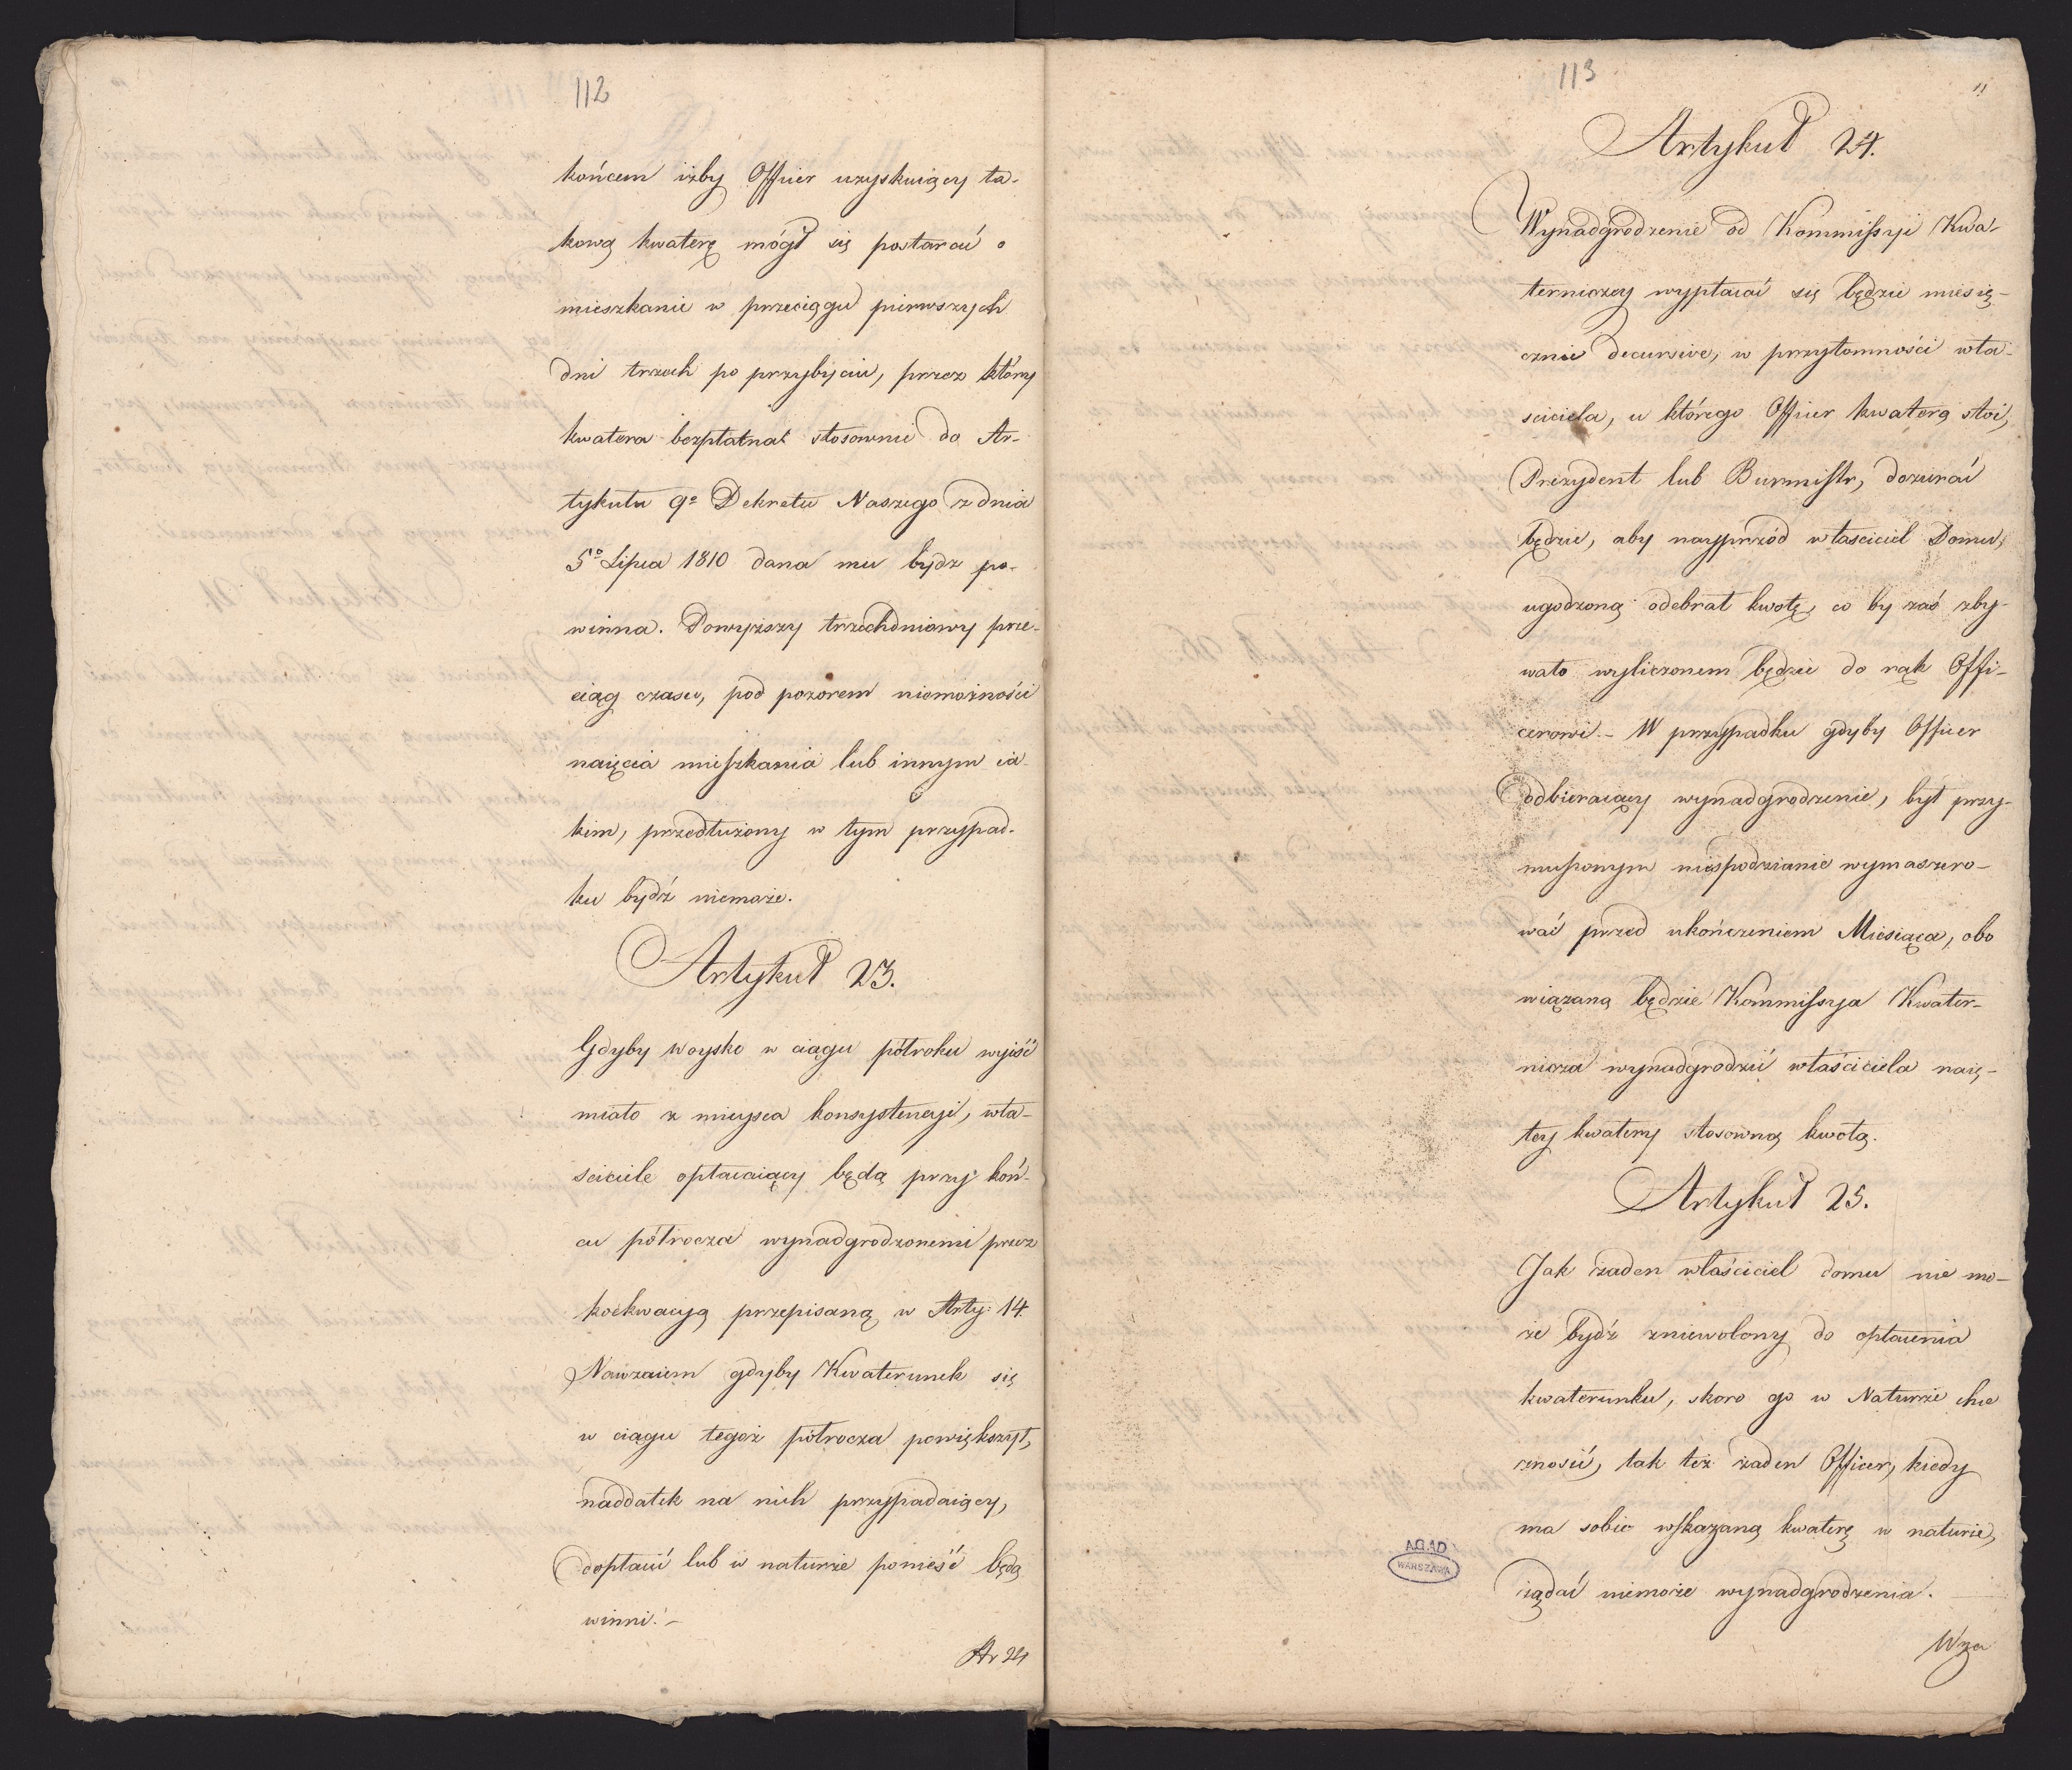 112
końcem iżby Officer uzyskuiący ta-
kową kwaterę mógł się postarać o
mieszkanie w przeciągu pierwszych
dni trzech po przybyciu, przez który
kwatera bezpłatna stosownie do Ar-
tykułu 9º Dekretu Naszego z dnia
5º Lipca 1810 dana mu bydź po-
winna. Powyższy trzechdniowy prze-
ciąg czasu, pod pozorem niemożności
naięcia mieszkania lub innym ia-
kim, przedłużony w tym przypad-
ku bydź niemoże.
Artykuł 23.
Gdyby woysko w ciągu półroku wyiść
miało z mieysca konsystencyi, wła-
sciciele opłacaiący będą przy koń-
cu półrocza wynadgrodzonemi przez
koekwacyą przepisaną w Arty: 14
Nawzaiem gdyby Kwaterunek się
w ciągu tegoż półrocza powiększył,
naddatek na nich przypadaiący,
dopłacić lub w naturze ponieść będą
winni.-
Ar 24
113
11
Artykuł 24.
Wynadgrodzenie od Kommissyi Kwa-
terniczey wypłacać się będzie miesię-
cznie decursive, w przytomności wła-
sciciela, u którego Officer kwaterą stoi,
Prezydent lub Burmistr, dozierać
będzie, aby nayprzód własciciel Domu,
ugodzoną odebrał kwotę, co by zaś zby-
wało wyliczonem będzie do rąk Offi-
cerowi.- W przypadku gdyby Officer
odbieraiący wynadgrodzenie, był przy-
muszonym niespodzianie wymaszero-
wać przed ukończeniem Miesiąca, obo
wiązaną będzie Kommissya Kwater-
nicza wynadgrodzić właściciela naię-
tey kwatery stosowną kwotą.
Artykuł 25.
Jak żaden właściciel domu nie mo-
że bydź zniewolony do opłacenia
kwaterunku, skoro go w Naturze chce
znosić, tak też żaden Officer, kiedy
ma sobie wskazaną kwaterę w naturze,
żądać niemoże wynadgrodzenia.
AGAD
WARSZAWA
Wza